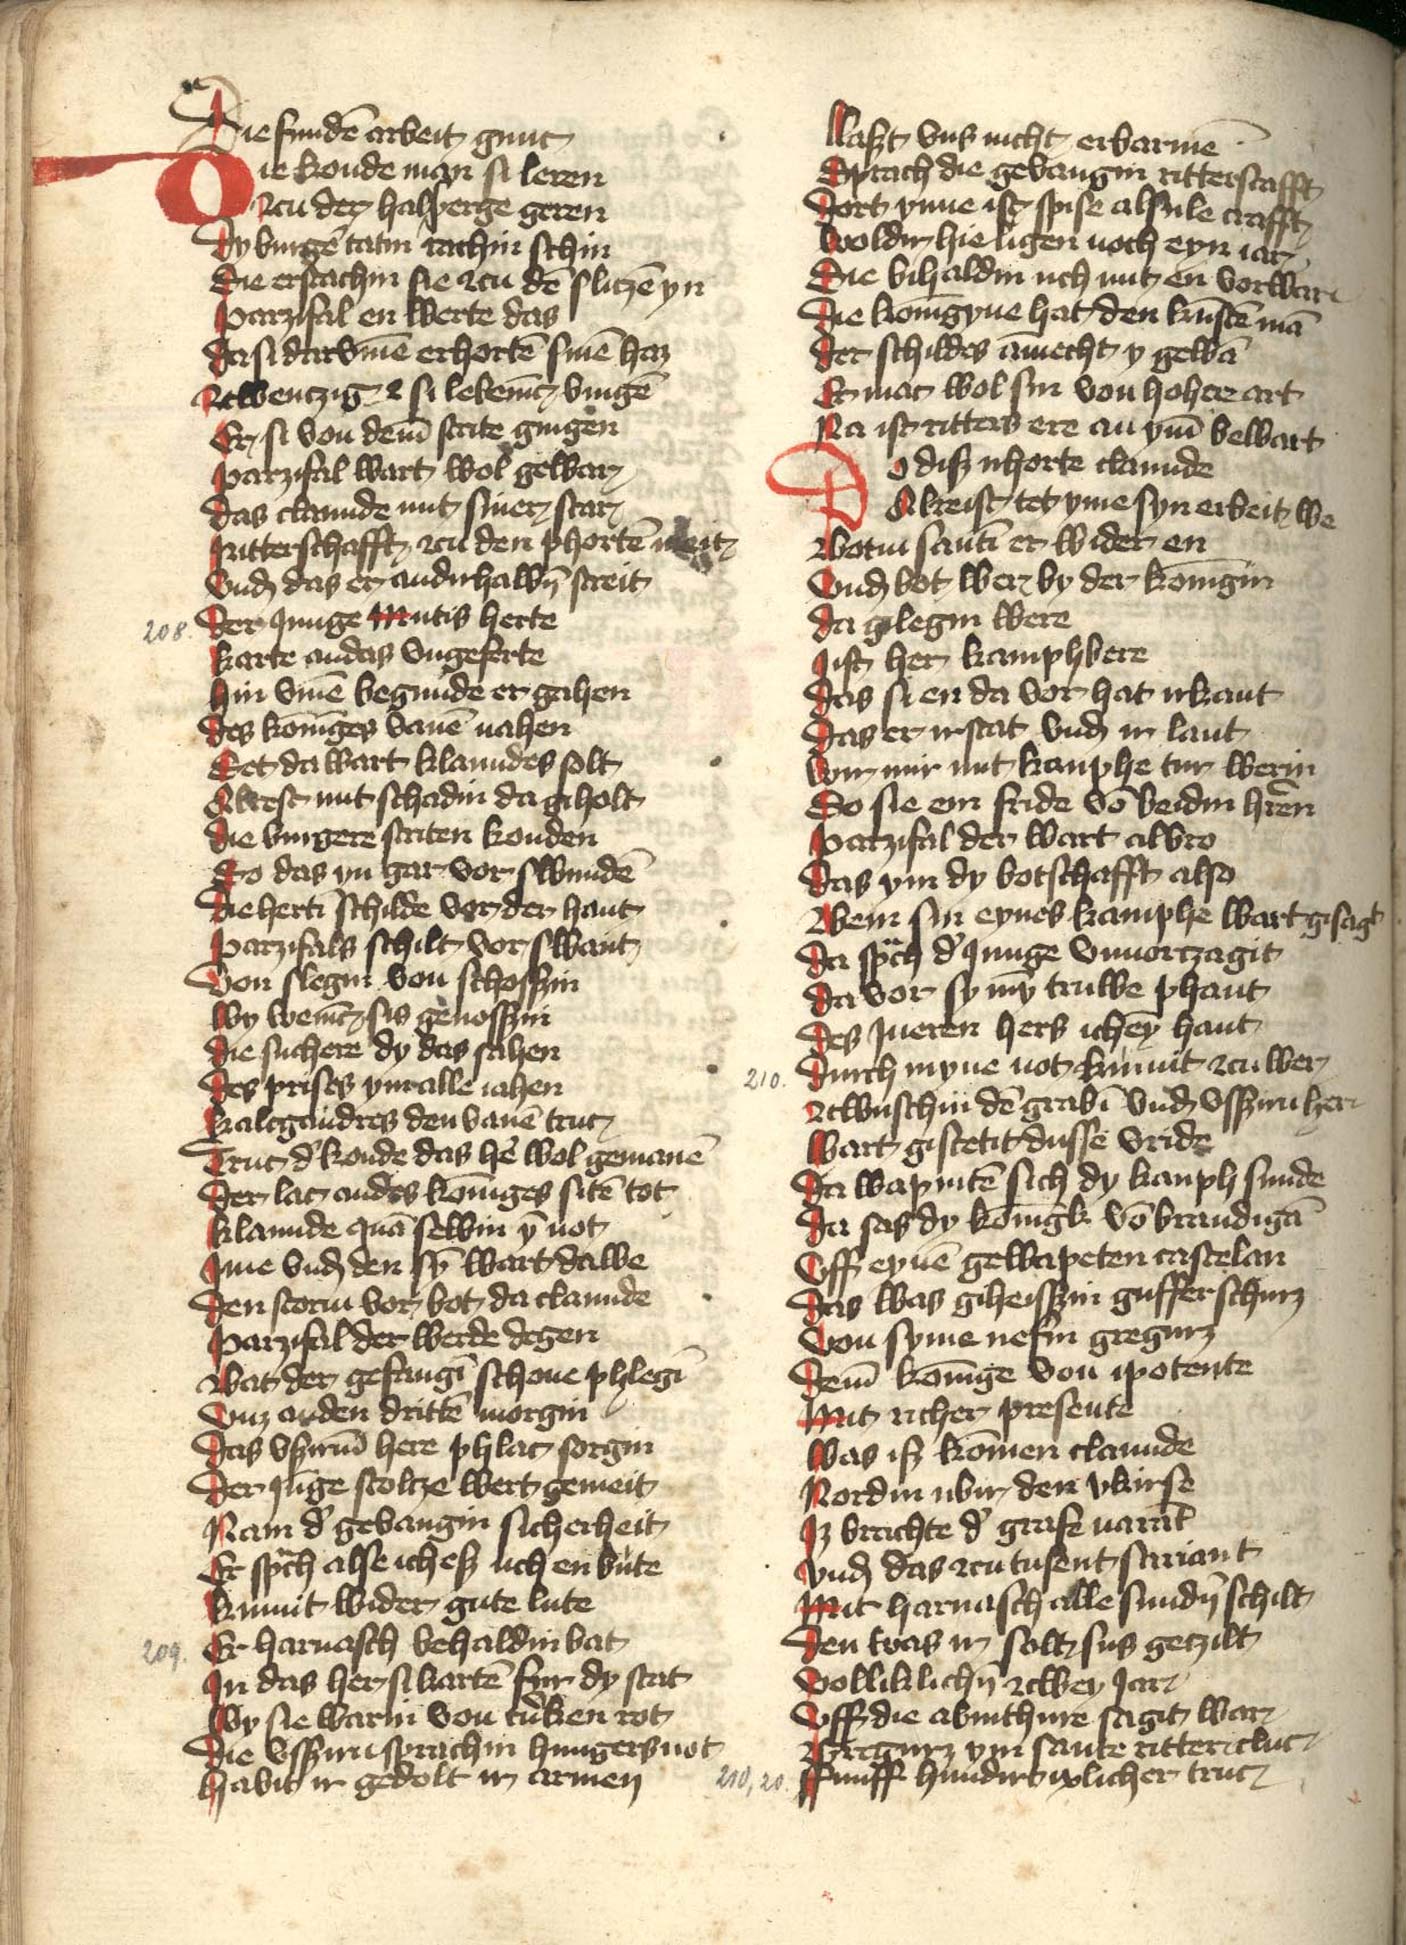 Die fundē arbeit gnuc
Die konde man si leren
zcu der halsperge geren
Dy burgē tatin rachin schin
Die erstachin sie zcu dē slitzē yn
Parzifal en werte das
Da si dar vmē erhortē sinē haz
Zcwenczig er si lebenīc vingē
Er si von dem strite gingen
Parzifal wart wol gewar
Das clamide mit siner schar
Ritterschafft zcu den phortē meit
Vnd das er andirhalwin streit
Der Junge Mutis herte
208.
karte an das vngeferte
Hin vmē begunde er gahen
Des koniges vanē nahen
Set da wart klamides solt
Alrest mit schadin da giholt
Die burgere striten konden
So das yn gar vor swundē
Die herti schilde vor der hant
Parzifals schilt vor swant
Von slegin von schossin
Wy wenīc sis genossin
Die suchere dy das sahen
Des prises ym alle iahen
kalogandres den vanē truc
Truc d' konde das her wol gemanē
Der lac an des koniges sitē tot
klamide quā selwin ȳ not
Ime vnd den sȳ wart da we
Den storm vor bot da clamide
Parzifal der werde degen
Wat der gefangī schone phlegī
Vnz an den drittē morgin
Das vsirm here phlac sorgin
Der Jūge stoltze wert gemeit
Nam d' gevangin sicherheit
Er sprch alse ich eß uch enbute
kumit wider gute lute
209.
Er harnasch behaldin bat
In das her si kartē fur dy stat
Wy sie warin von trūken rot
Die vssirn sprachin hungers not
Habit ir gedolt ir armen
Laßt vns nicht erbarmē
Sprach die gevangin ritterscafft
Dort ynne ist spise alsule crafft
Woldir hie ligen noch eyn iar
Die bihaldin uch mit en vorwar
Die konīgyne hat den kunstē mā
Der schildes āmecht y gewā
Er mac wol sin von hoher art
Na ist ritters ere an ym bewart
Do diß irhorte clamide
Alreist tet yme syn erbeit we
Botin santī er wider en
Vnd bot wer by der konigin
Da gelegin were
Ist her kamphbere
Das si en da vor hat irkant
Das er ir stat vnd ir lant
Vor mir mit kamphe tur werin
So sie ein fride vō beidin hern
Parzifal der wart al vro
Das ym dy botschafft also
Wem sin eynes kamphe wart gisagt
Da sprch d' Junge vnuorczagit
Da vor sy my truwe phant
Des Jnneren hers ichey hant
210.
Durch myne not kumit zcu wer
Zcwuschin dē grabī vnd vssirn her
Wart gistetit dusse vride
Da wapintē sich dy kamph smide
Da sas dy konigk vō brandigā
Vff eynē gewapeten castelan
Das was giheissin gufferschurz
Von syme nefin gregurz
Dem konige von ipotente
Mit richer presente
Was iß komen clamide
Nordin ubir den vkirse
Iz brachte d' grafe narāt
Vnd das zcu tusent sariant
Mit harnasch alle sundir schilt
Den was ir solt sus getzilt
Volliklichin zcwey Jar
Vff die abinthure sagit war
Gregurz ym sante ritter cluc
210,20.
Funff hundirt ixlicher truc